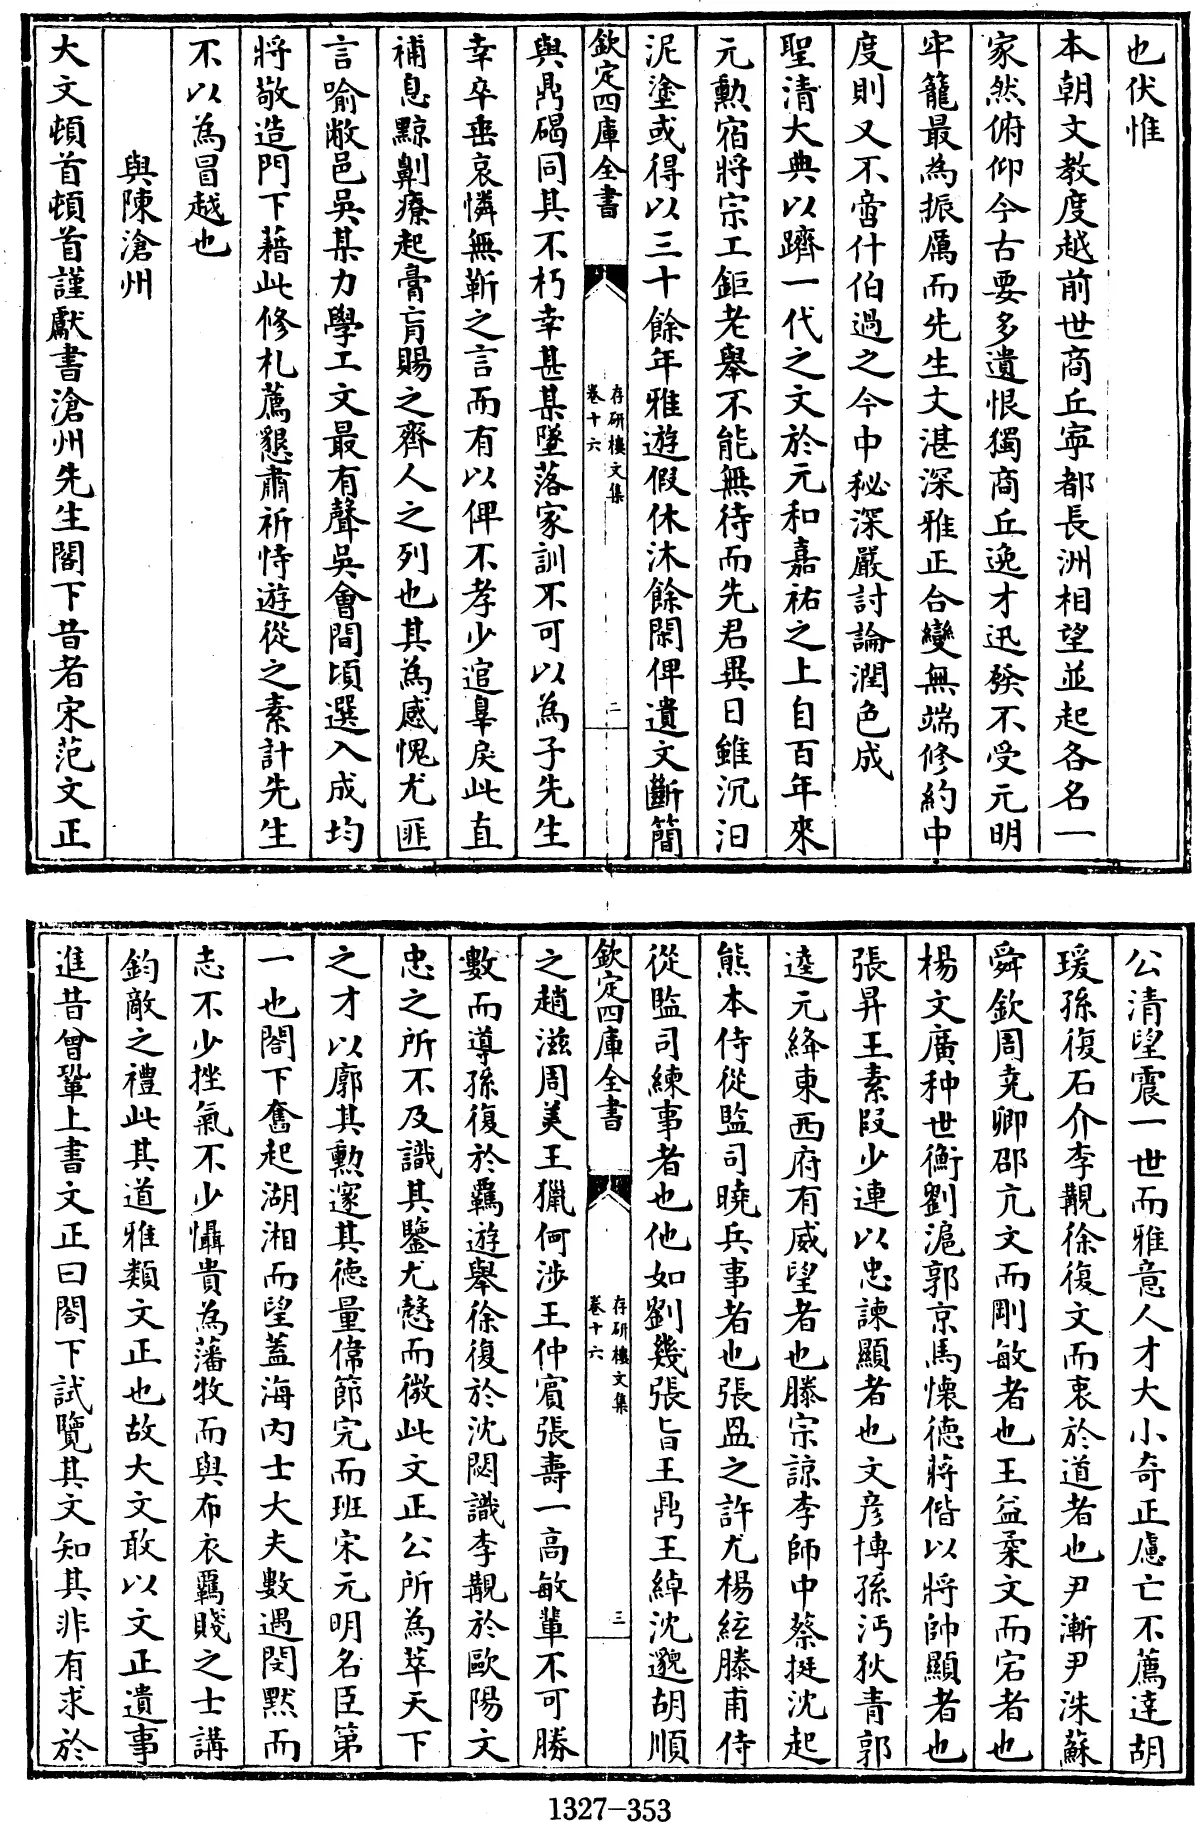 也伏惟
本朝文教度越前世商丘寧都長洲相望並起各名一
家然俯仰今古要多遺恨獨商丘逸才迅發不受元明
牢籠最為振厲而先生丈湛深雅正合變無端修約中
度則又不啻什伯過之今中秘深嚴討論潤色成
聖清大典以躋一代之文於元和嘉祐之上自百年來
元勲宿將宗工鉅老舉不能無待而先君異日雖沉汨
泥塗或得以三十餘年雅遊假休沐餘閑俾遺文斷簡
欽定四庫全書
存研樓文集
卷十六
二
與鼎碣同其不朽幸甚某墜落家訓不可以為子先生
幸卒垂哀憐無靳之言而有以俾不孝少逭辠戾此直
補息黥劓療起膏肓賜之齊人之列也其為感愧尤匪
言喻敝邑吳某力學工文最有聲吳會間頃選入成均
將敬造門下藉此修札薦懇肅祈恃遊從之素計先生
不以為冒越也
與陳滄州
大文頓首頓首謹獻書滄州先生閣下昔者宋范文正
公清望震一世而雅意人才大小奇正慮亡不薦達胡
瑗孫復石介李覯徐復文而衷於道者也尹漸尹洙蘇
舜欽周堯卿邵亢文而剛敏者也王益柔文而宕者也
楊文廣种世衡劉滬郭京馬懷德蔣偕以將帥顯者也
張昇王素段少連以忠諫顯者也文彦博孫沔狄青郭
逵元絳東西府有威望者也滕宗諒李師中蔡挺沈起
熊本侍從監司曉兵事者也張昷之許尤楊紘滕甫侍
從監司練事者也他如劉幾張旨王鼎王綽沈邈胡順
欽定四庫全書
存研樓文集
卷十六
三
之趙滋周美王獵何涉王仲賓張壽一高敏輩不可勝
數而導孫復於羈遊舉徐復於沈閟識李覯於歐陽文
忠之所不及識其鑒尤慤而微此文正公所為萃天下
之才以廓其勲邃其德量偉節完而班宋元明名臣第
一也閤下奮起湖湘而望蓋海內士大夫數遇閔默而
志不少挫氣不少懾貴為藩牧而與布衣羈賤之士講
鈞敵之禮此其道雅類文正也故大文敢以文正遺事
進昔曾鞏上書文正曰閣下試覽其文知其非有求於
1327-353